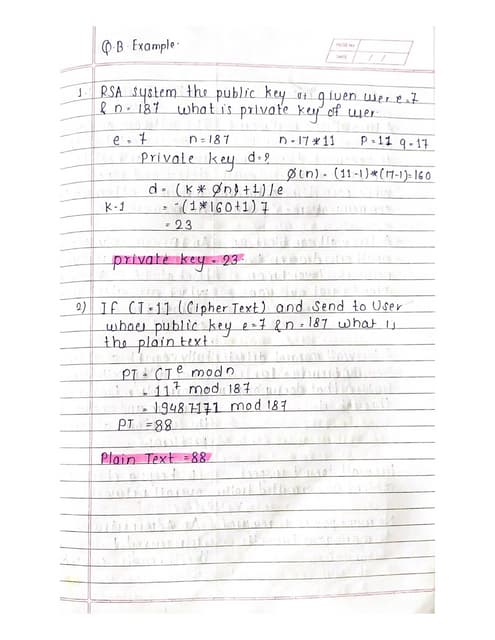 Q.B. Example.
PAGE NO
DATE / /
1. RSA system the public key of given user e=7
& n=187 what is private key of user
e=7 n=187 n=17*11 P=11 q=17
Private key d=?
Ø(n)=(11-1)*(17-1)=160
d=(k*Ø(n)+1)/e
K=1 =(1*160+1)7
=23
private key=23.
2) If CT=11 (Cipher Text) and Send to User
whoes public key e=7 & n=187 what is
the plain text.
PT=CTe modn
=11⁷ mod 187
=19487171 mod 187
PT =88
Plain Text =88